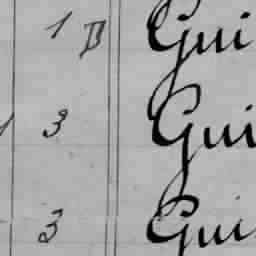 1 B Gui
3 Gui
3 Gui